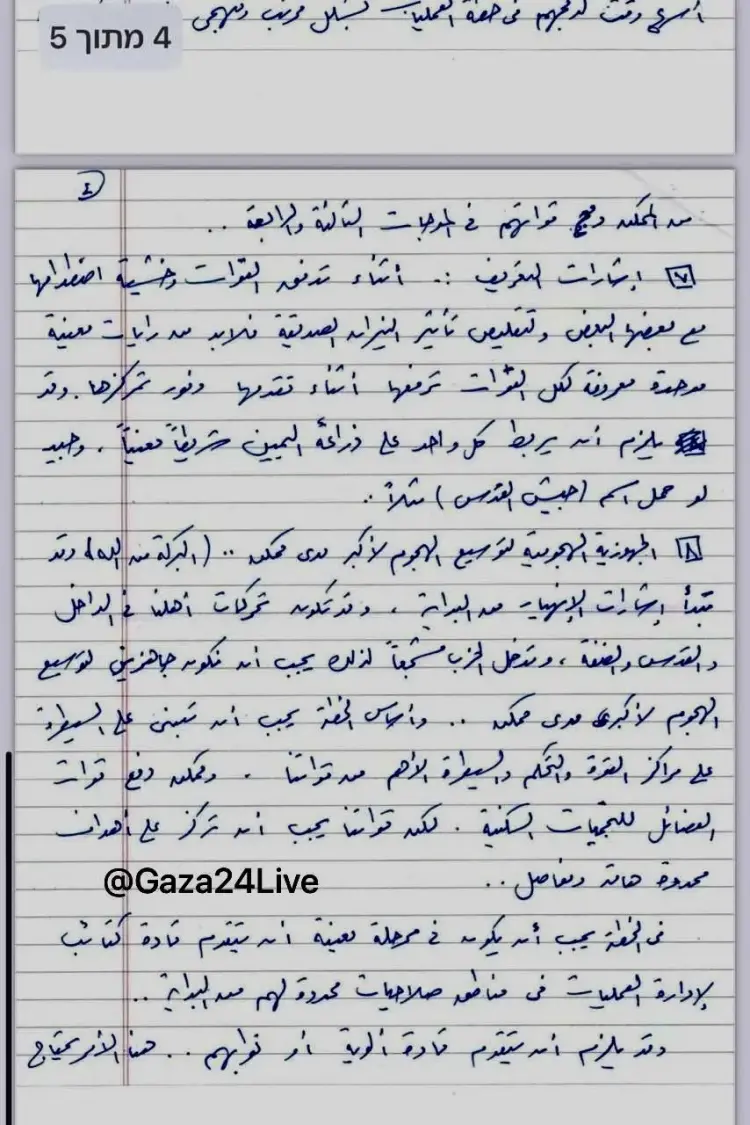 أسرع وقت لدمجهم في خطة العمليات بشكل مرتب ومنهجي
4 מתוך 5
٤
من الممكن دمج قواتهم في الموجات الثالثة والرابعة ..
٧ إشارات التعريف :. أثناء تدفق القوات وخشية اصطدامها
مع بعضها البعض ولتقليص تأثير النيران الصديقة فلابد من رايات معينة
موحدة معروفة لكل القوات ترفعها أثناء تقدمها وفور تمركزها. وقد
يلزم أن يربط كل واحد على ذراعه اليمين شريطاً معيناً، وحبذ
لو حمل اسم (جيش القدس) مثلاً ..
٨ الجهوزية الهجومية لتوسيع الهجوم لأكبر مدى ممكن .. (البركة من الله) وقد
تبدأ إشارات الإنهيار من البداية، وقد تكون تحركات أهلنا في الداخل
والقدس والضفة، وتدخل الحزب مشجعاً لذلك يجب أن نكون جاهزين لتوسيع
الهجوم لأكبر مدى ممكن .. وأساس الخطة يجب أن تبنى على السيطرة
على مراكز القوة والتحكم والسيطرة الأهم من قواتنا . وممكن دفع قوات
الفصائل للتجمعات السكنية . لكن قواتنا يجب أن تركز على أهداف
محددة هامة ومفاصل ..
@Gaza24Live
في الخطة يجب أن يكون في مرحلة معينة أن يتقدم قادة كتائب
لإدارة العمليات في مناطق صلاحيات محددة لهم من البداية ..
وقد يلزم أن يتقدم قادة ألوية أو نوابهم .. هذا الأمر يحتاج